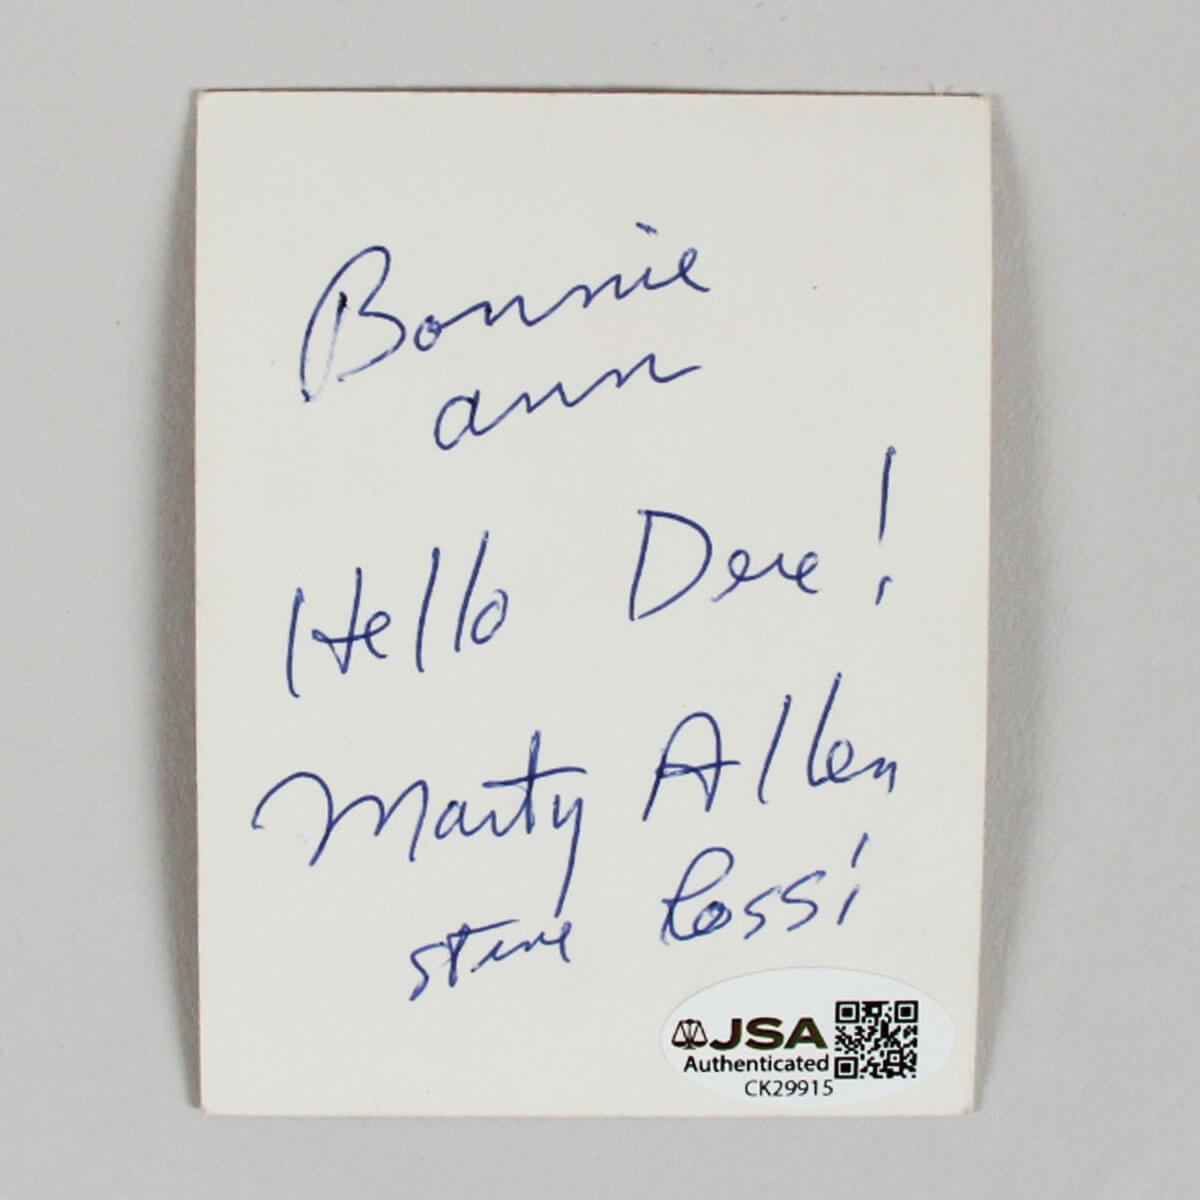 Bonnie
ann
Hello Dere!
Marty Allen
Steve Rossi
JSA
Authenticated
CK29915